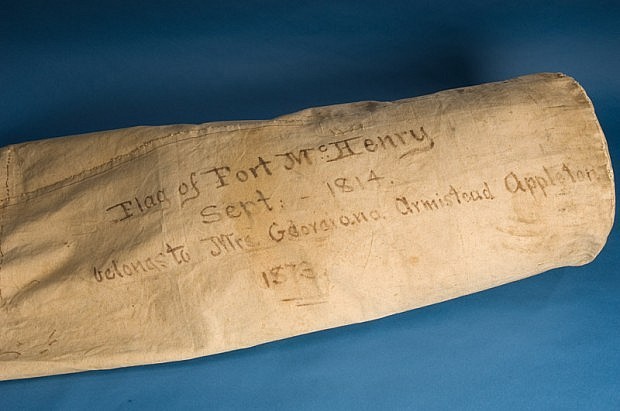 Flag of Fort McHenry
Sept. - 1814.
belongs to Mrs Georgiana Armistead Appleton
1873.